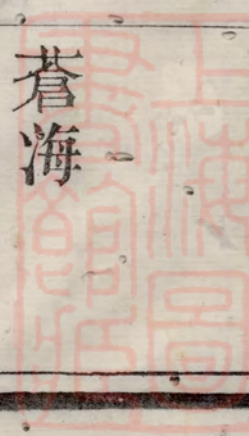 蒼海
上海圖
書館藏